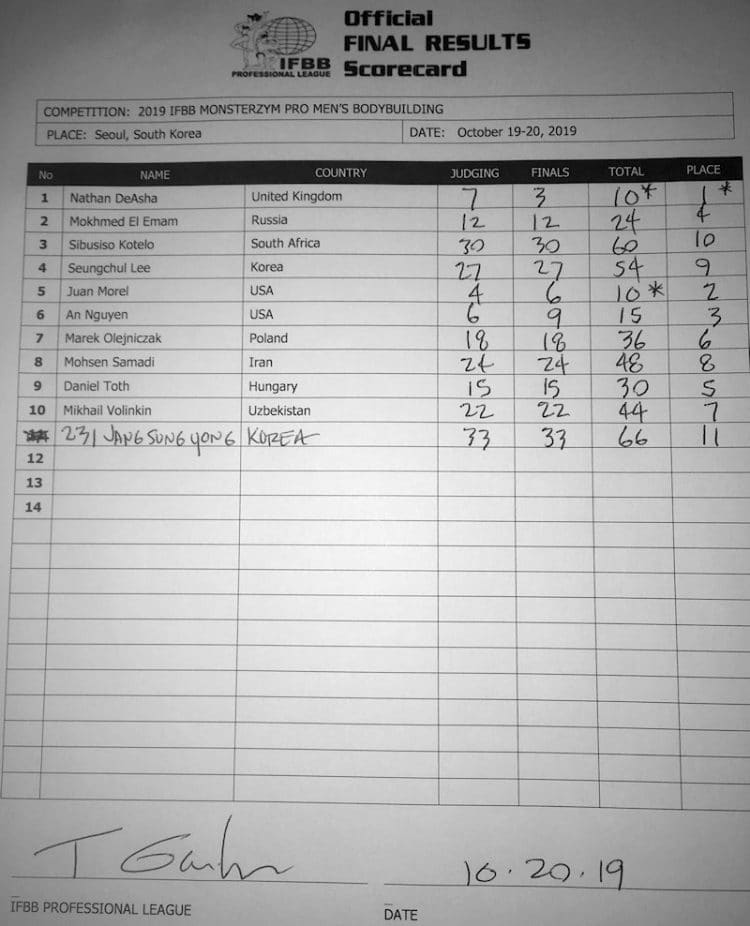 Official
FINAL RESULTS
Scorecard
IFBB
PROFESSIONAL LEAGUE
COMPETITION: 2019 IFBB MONSTERZYM PRO MEN'S BODYBUILDING
PLACE: Seoul, South Korea DATE: October 19-20, 2019
No NAME COUNTRY JUDGING FINALS TOTAL PLACE
1 Nathan DeAsha United Kingdom 7 3 10* 1*
2 Mokhmed El Emam Russia 12 12 24 4
3 Sibusiso Kotelo South Africa 30 30 60 10
4 Seungchul Lee Korea 27 27 54 9
5 Juan Morel USA 4 6 10* 2
6 An Nguyen USA 6 9 15 3
7 Marek Olejniczak Poland 18 18 36 6
8 Mohsen Samadi Iran 24 24 48 8
9 Daniel Toth Hungary 15 15 30 5
10 Mikhail Volinkin Uzbekistan 22 22 44 7
231 JANG SUNG YONG KOREA 33 33 66 11
12
13
14
10.20.19
IFBB PROFESSIONAL LEAGUE DATE